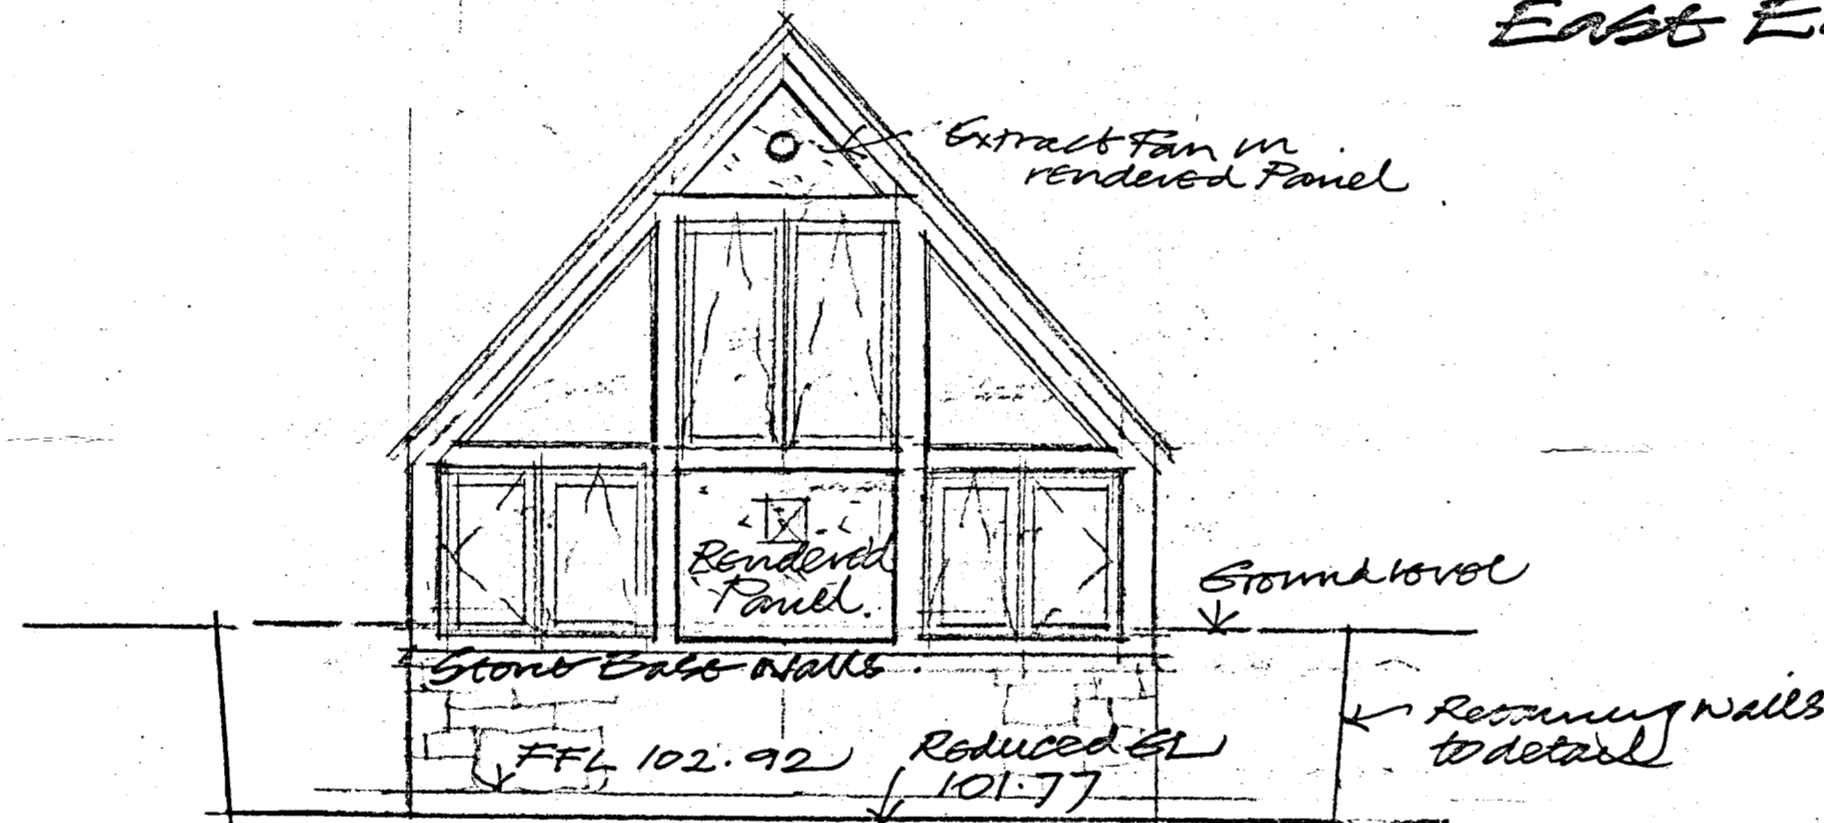 East E
Extract Fan in
rendered Panel
Rendered
Panel.
Ground level
Stone Base walls.
Retaining walls
to detail
FFL 102.92
Reduced GL
101.77